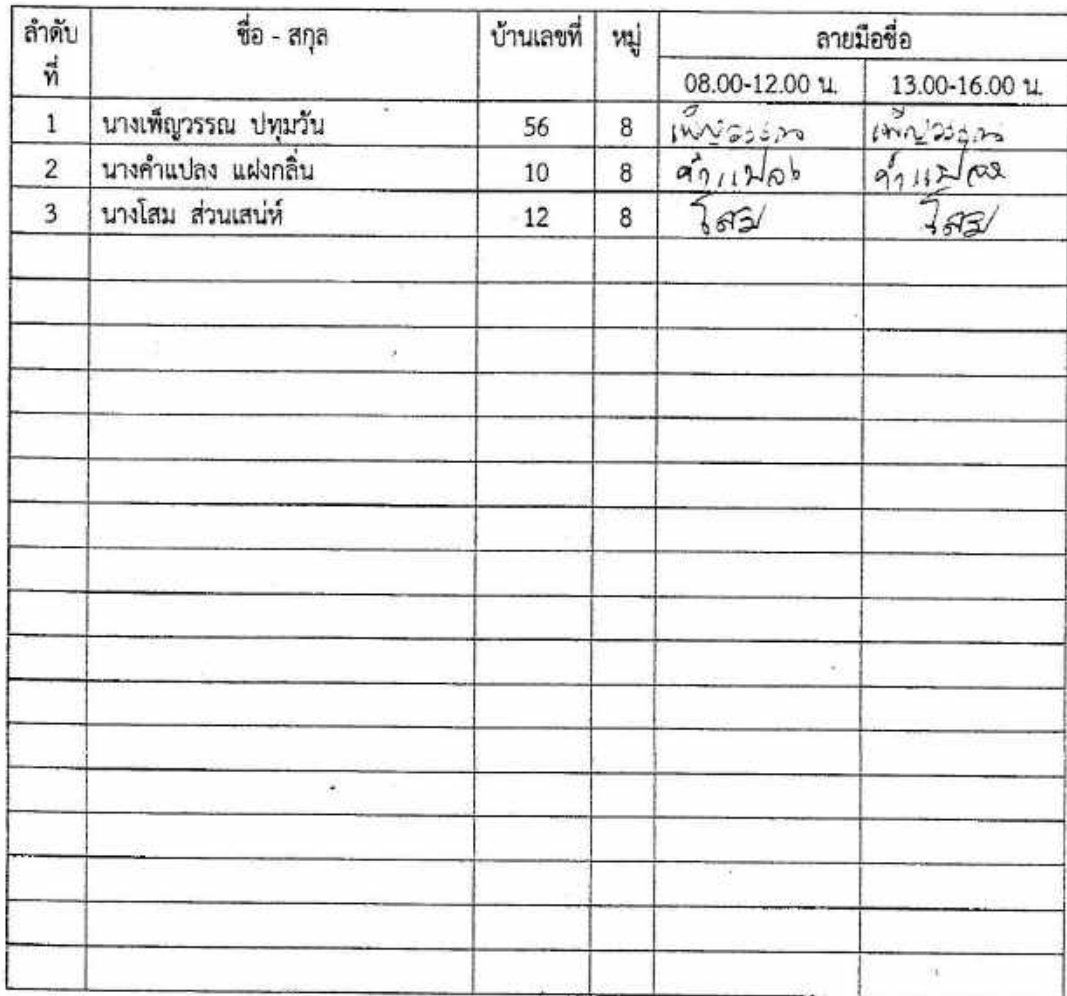 ลำดับที่ ชื่อ - สกุล บ้านเลขที่ หมู่ ลายมือชื่อ
08.00-12.00 น. 13.00-16.00 น.
1 นางเพ็ญวรรณ ปทุมวัน 56 8 เพ็ญวรรณ เพ็ญวรรณ
2 นางคำแปลง แฝงกลิ่น 10 8 คำแปลง คำแปลง
3 นางโสม ส่วนเสน่ห์ 12 8 โสม โสม